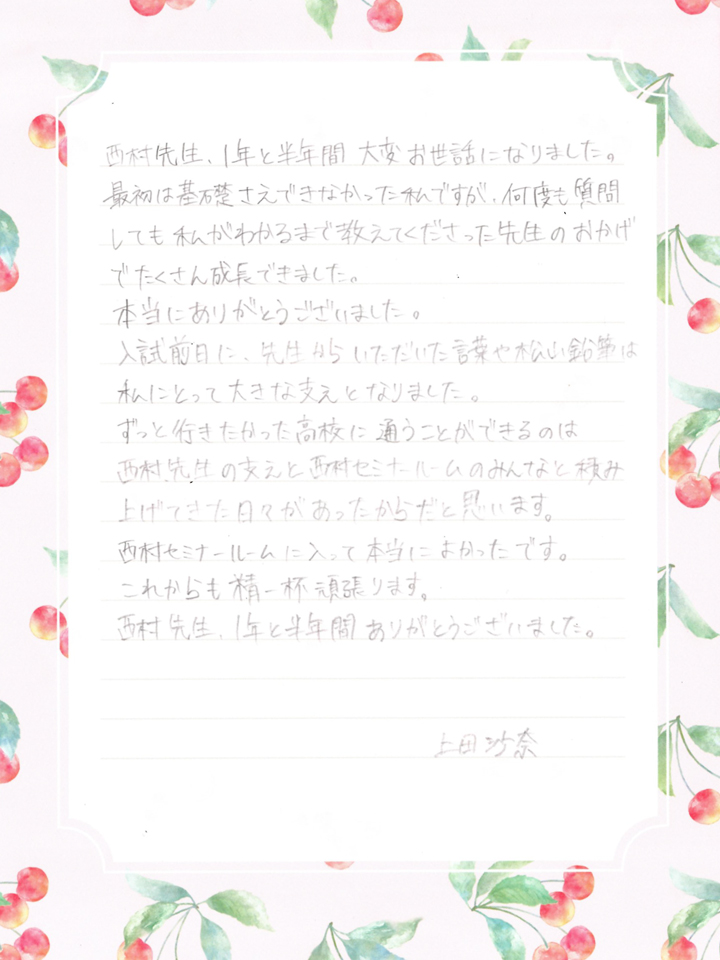 西村先生、1年と半年間 大変お世話になりました。
最初は基礎さえできなかった私ですが、何度も質問
しても私がわかるまで教えてくださった先生のおかげ
でたくさん成長できました。
本当にありがとうございました。
入試前日に、先生からいただいた言葉や松山鉛筆は
私にとって大きな支えとなりました。
ずっと行きたかった高校に通うことができるのは
西村先生の支えと西村セミナールームのみんなと積み
上げてきた日々があったからだと思います。
西村セミナールームに入って本当によかったです。
これからも精一杯頑張ります。
西村先生、1年と半年間ありがとうございました。
上田沙奈